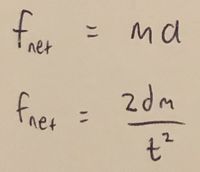 f_net = ma
f_net = 2dm / t²